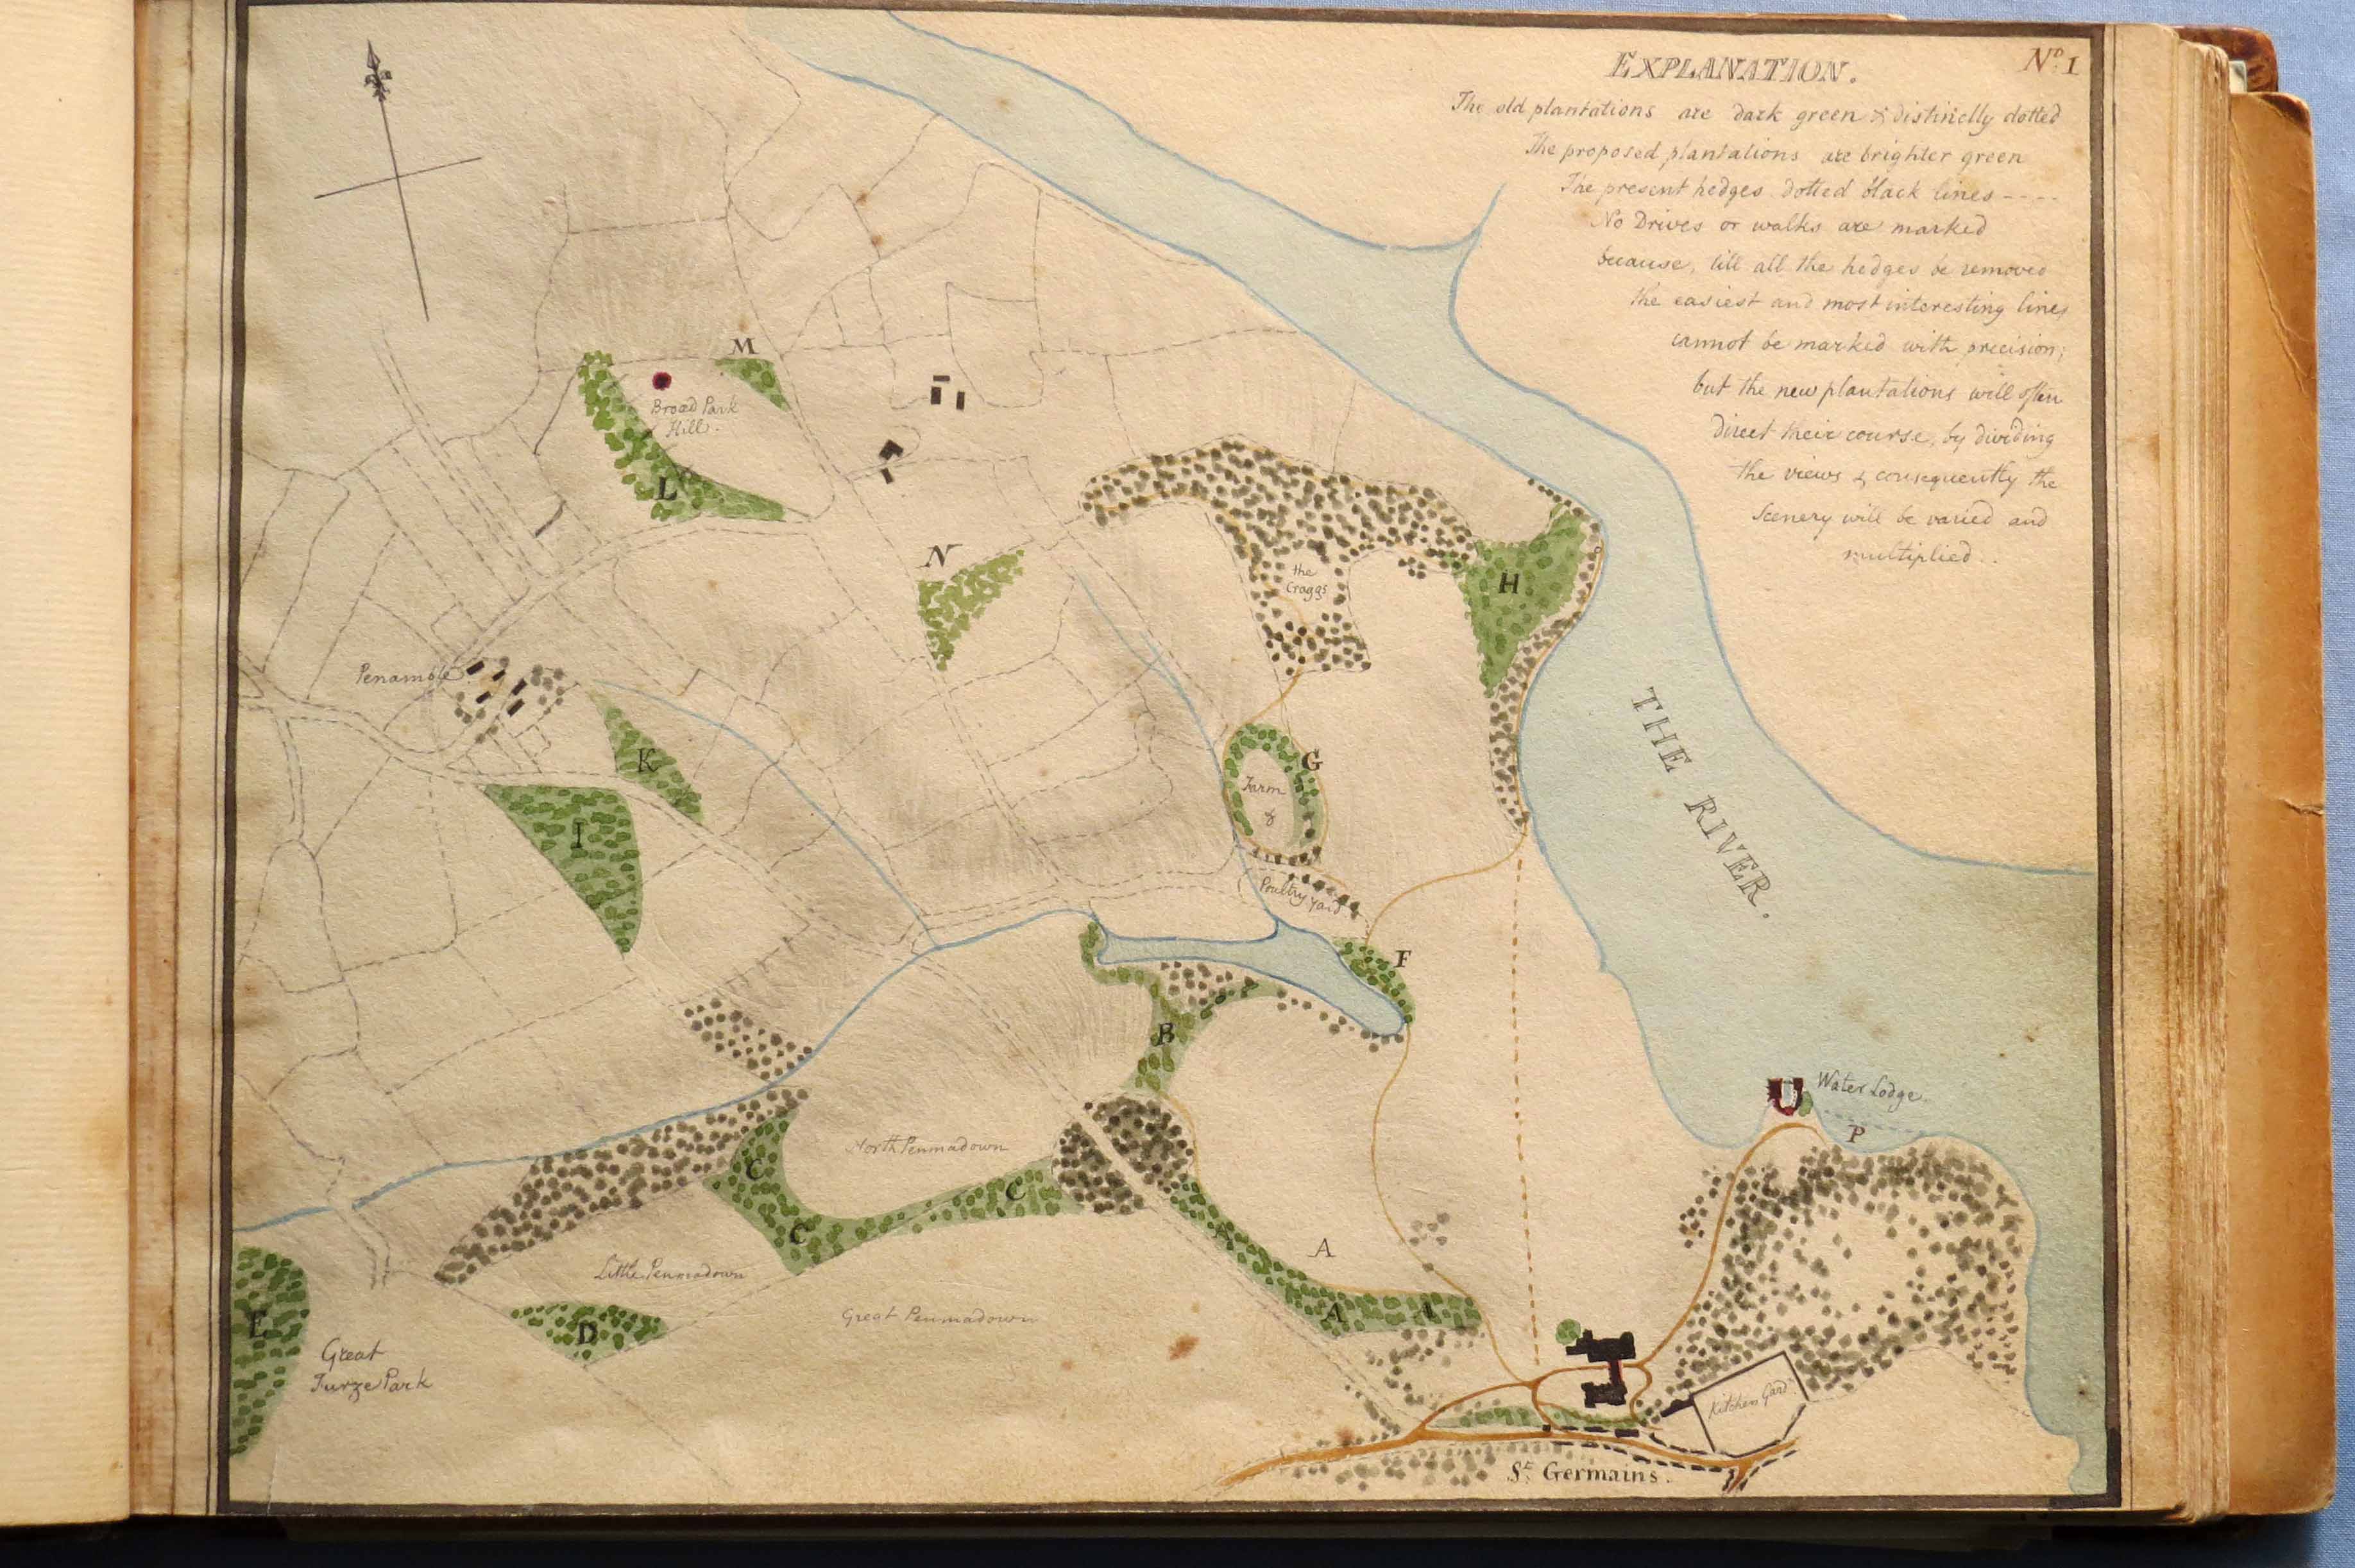 EXPLANATION.
No. 1
The old plantations are dark green & distinctly dotted
The proposed plantations are brighter green
The present hedges dotted black lines ----
No Drives or walks are marked
because, till all the hedges be removed
the easiest and most interesting lines
cannot be marked with precision;
but the new plantations will often
direct their course, by dividing
the views & consequently the
Scenery will be varied and
multiplied..
M
Broad Park
Hill.
L
N
the
Craggs
H
Penamble
K
I
G
Farm
&
Poultry Yard
THE RIVER.
F
B
Water Lodge.
P
North Penmadown
C
C
C
A
A
A
A
Little Penmadown
Great Penmadown
D
E
Great
Furze Park
Kitchen Gard.
St. Germains.